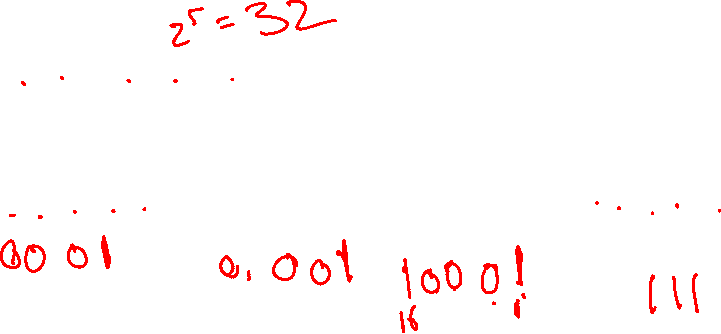 2⁵ = 32
. . . . .
. . . . . . . . . .
0001 0.001 10001 111
16